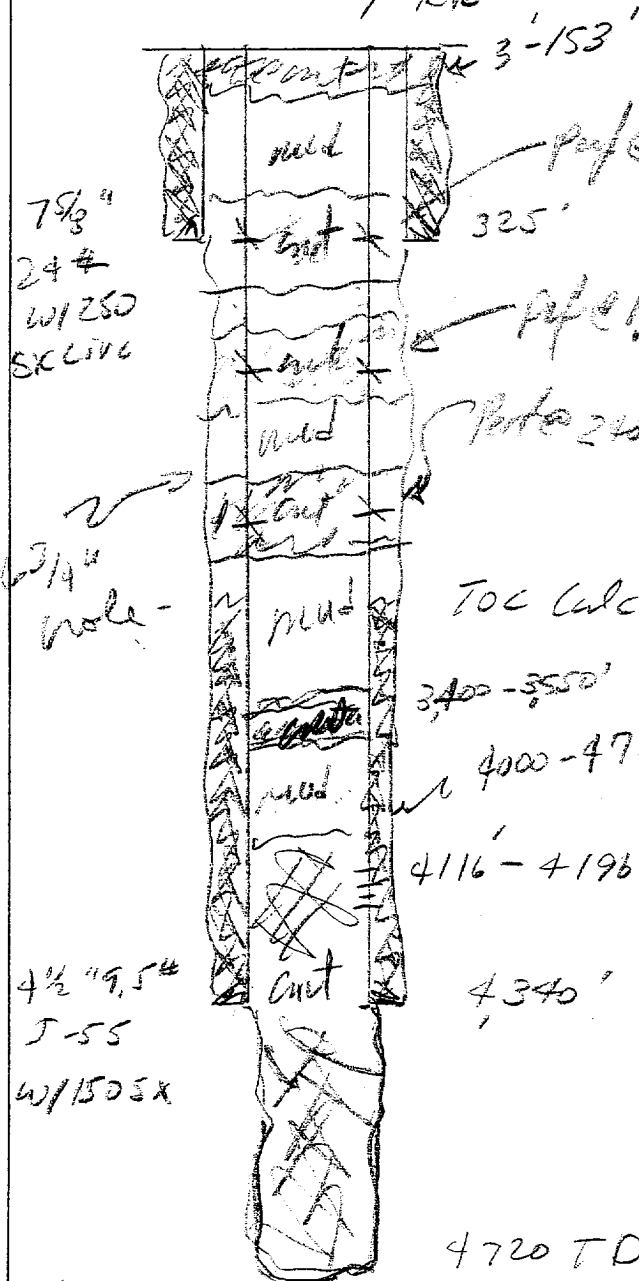 3'-153'
mud
7 5/8"
24#
W/250
SX CIRC
325'
cmt
Perf@
mud
Perf@ 240
cmt
6 3/4"
hole-
mud
TOC Calc
3,400-3,550'
mud
4000-47
4116'-4196
4 1/2" 9.5#
J-55
W/150 SX
cmt
4,340'
4720 TD